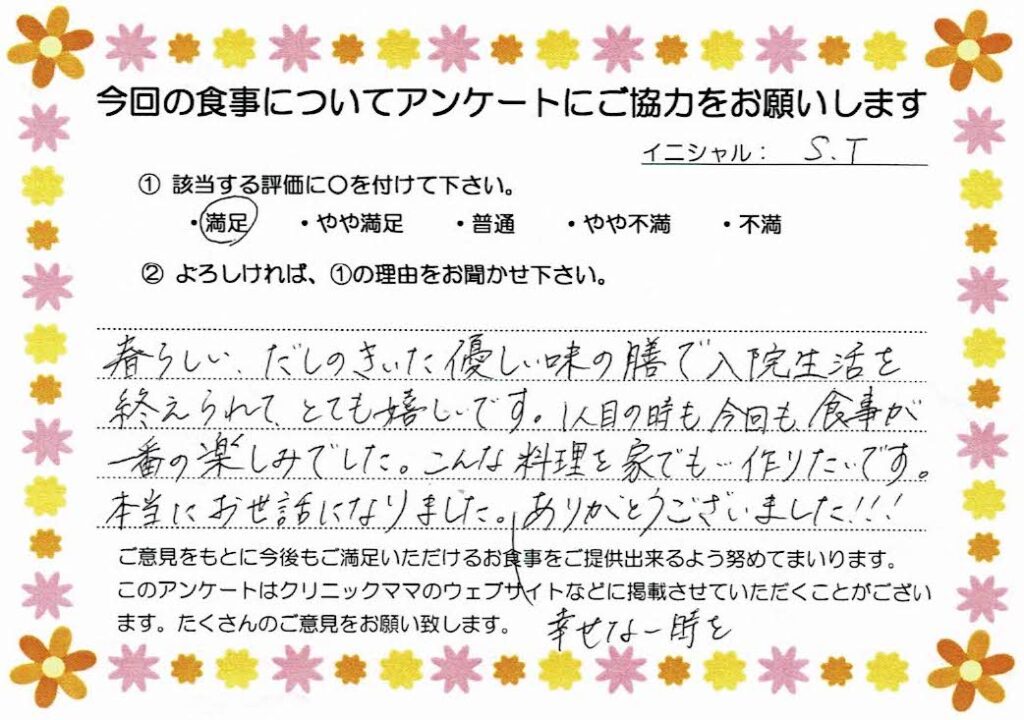 今回の食事についてアンケートにご協力をお願いします
イニシャル： S.T
① 該当する評価に〇を付けて下さい。
・満足 ・やや満足 ・普通 ・やや不満 ・不満
② よろしければ、①の理由をお聞かせ下さい。
春らしい、だしのきいた優しい味の膳で入院生活を
終えられて、とても嬉しいです。1人目の時も今回も食事が
一番の楽しみでした。こんな料理を家でも…作りたいです。
本当にお世話になりました。ありがとうございました!!!
ご意見をもとに今後もご満足いただけるお食事をご提供出来るよう努めてまいります。
このアンケートはクリニックママのウェブサイトなどに掲載させていただくことがござい
ます。たくさんのご意見をお願い致します。
幸せな一時を